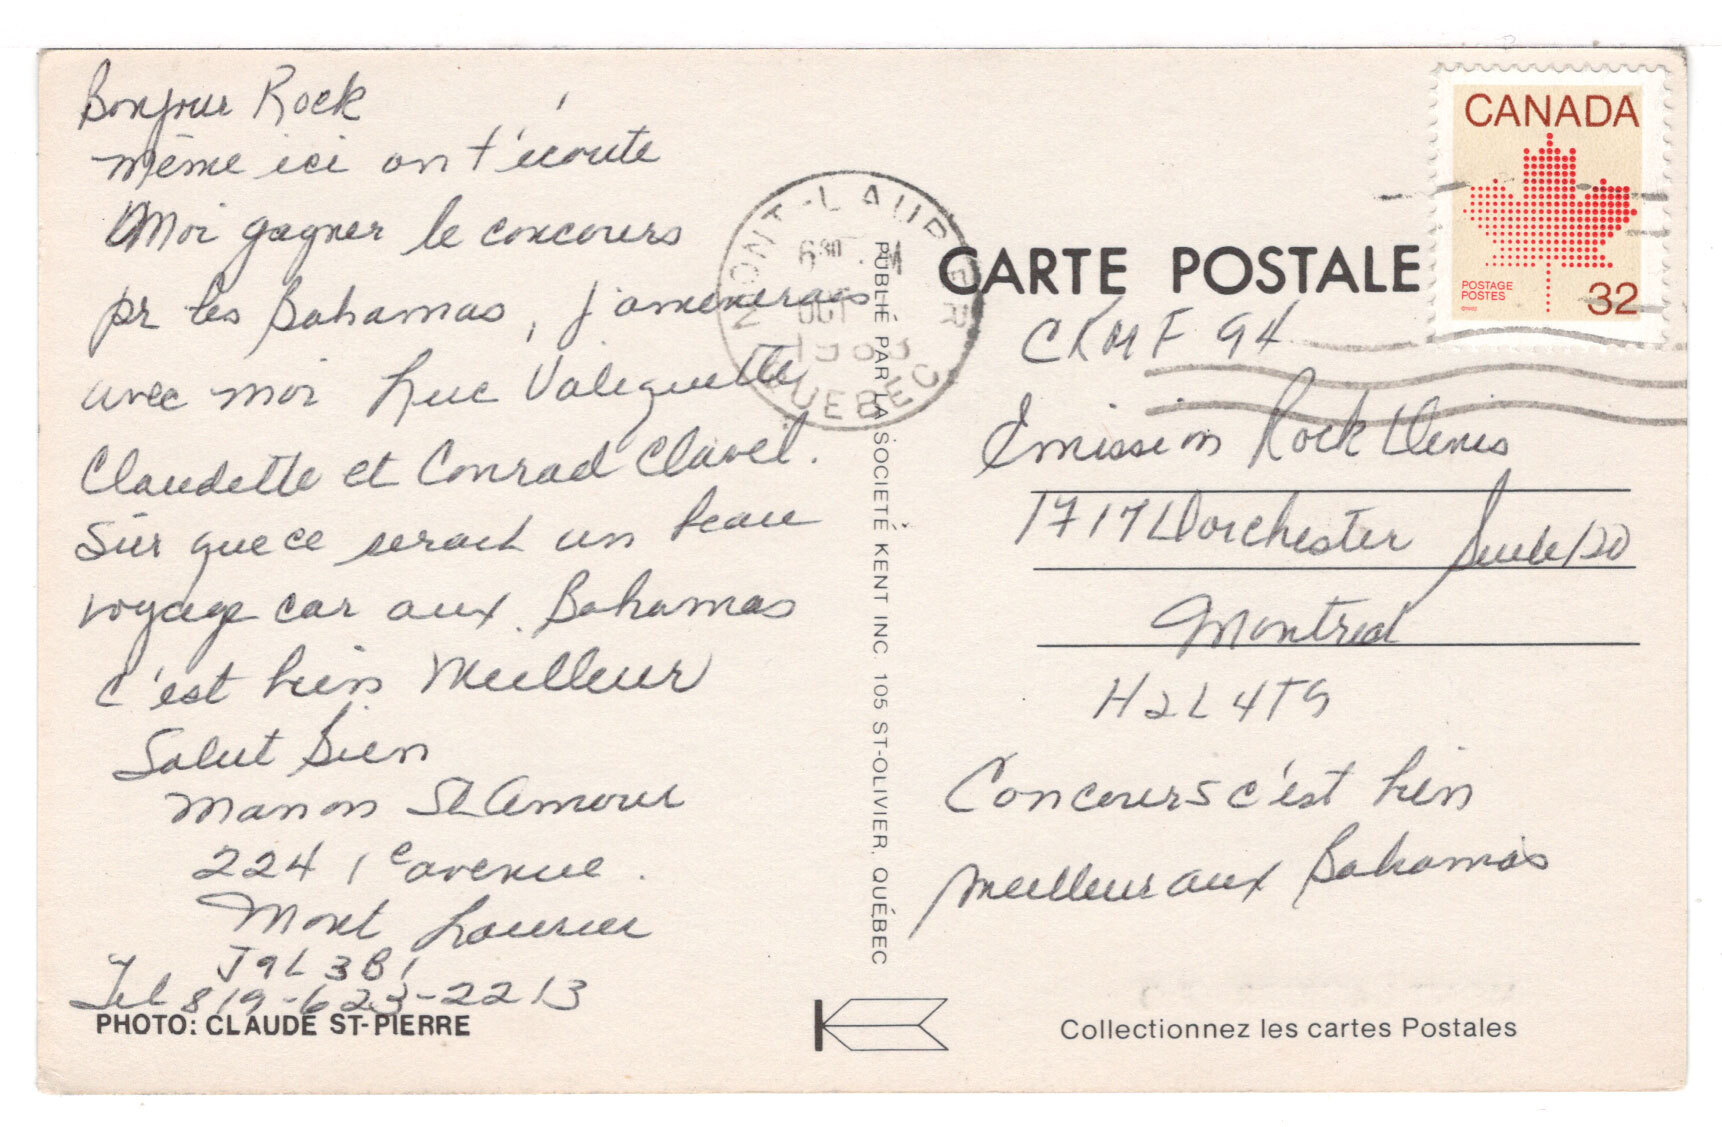 Bonjour Rock
même ici on t'écoute
Moi gagner le concours
pr les Bahamas, j'amènerais
avec moi Luc Valiquette
Claudette et Conrad Clavel.
Sûr que ce serait un beau
voyage car aux Bahamas
c'est bien Meilleur
Salut Bien
Manon St Amour
224 1e avenue.
Mont Laurier
J9L 3B1
Tel 819-623-2213
PHOTO: CLAUDE ST-PIERRE
MONT-LAURIER
630 M
OCT
1983
QUEBEC
PUBLIÉ PAR LA SOCIÉTÉ KENT INC. 105 ST-OLIVIER, QUÉBEC
CANADA
POSTAGE
POSTES
32
CARTE POSTALE
CKMF 94
Émission Rock Denis
1717 Dorchester Suite 120
Montreal
H2L 4T9
Concours c'est bien
meilleur aux Bahamas
Collectionnez les cartes Postales